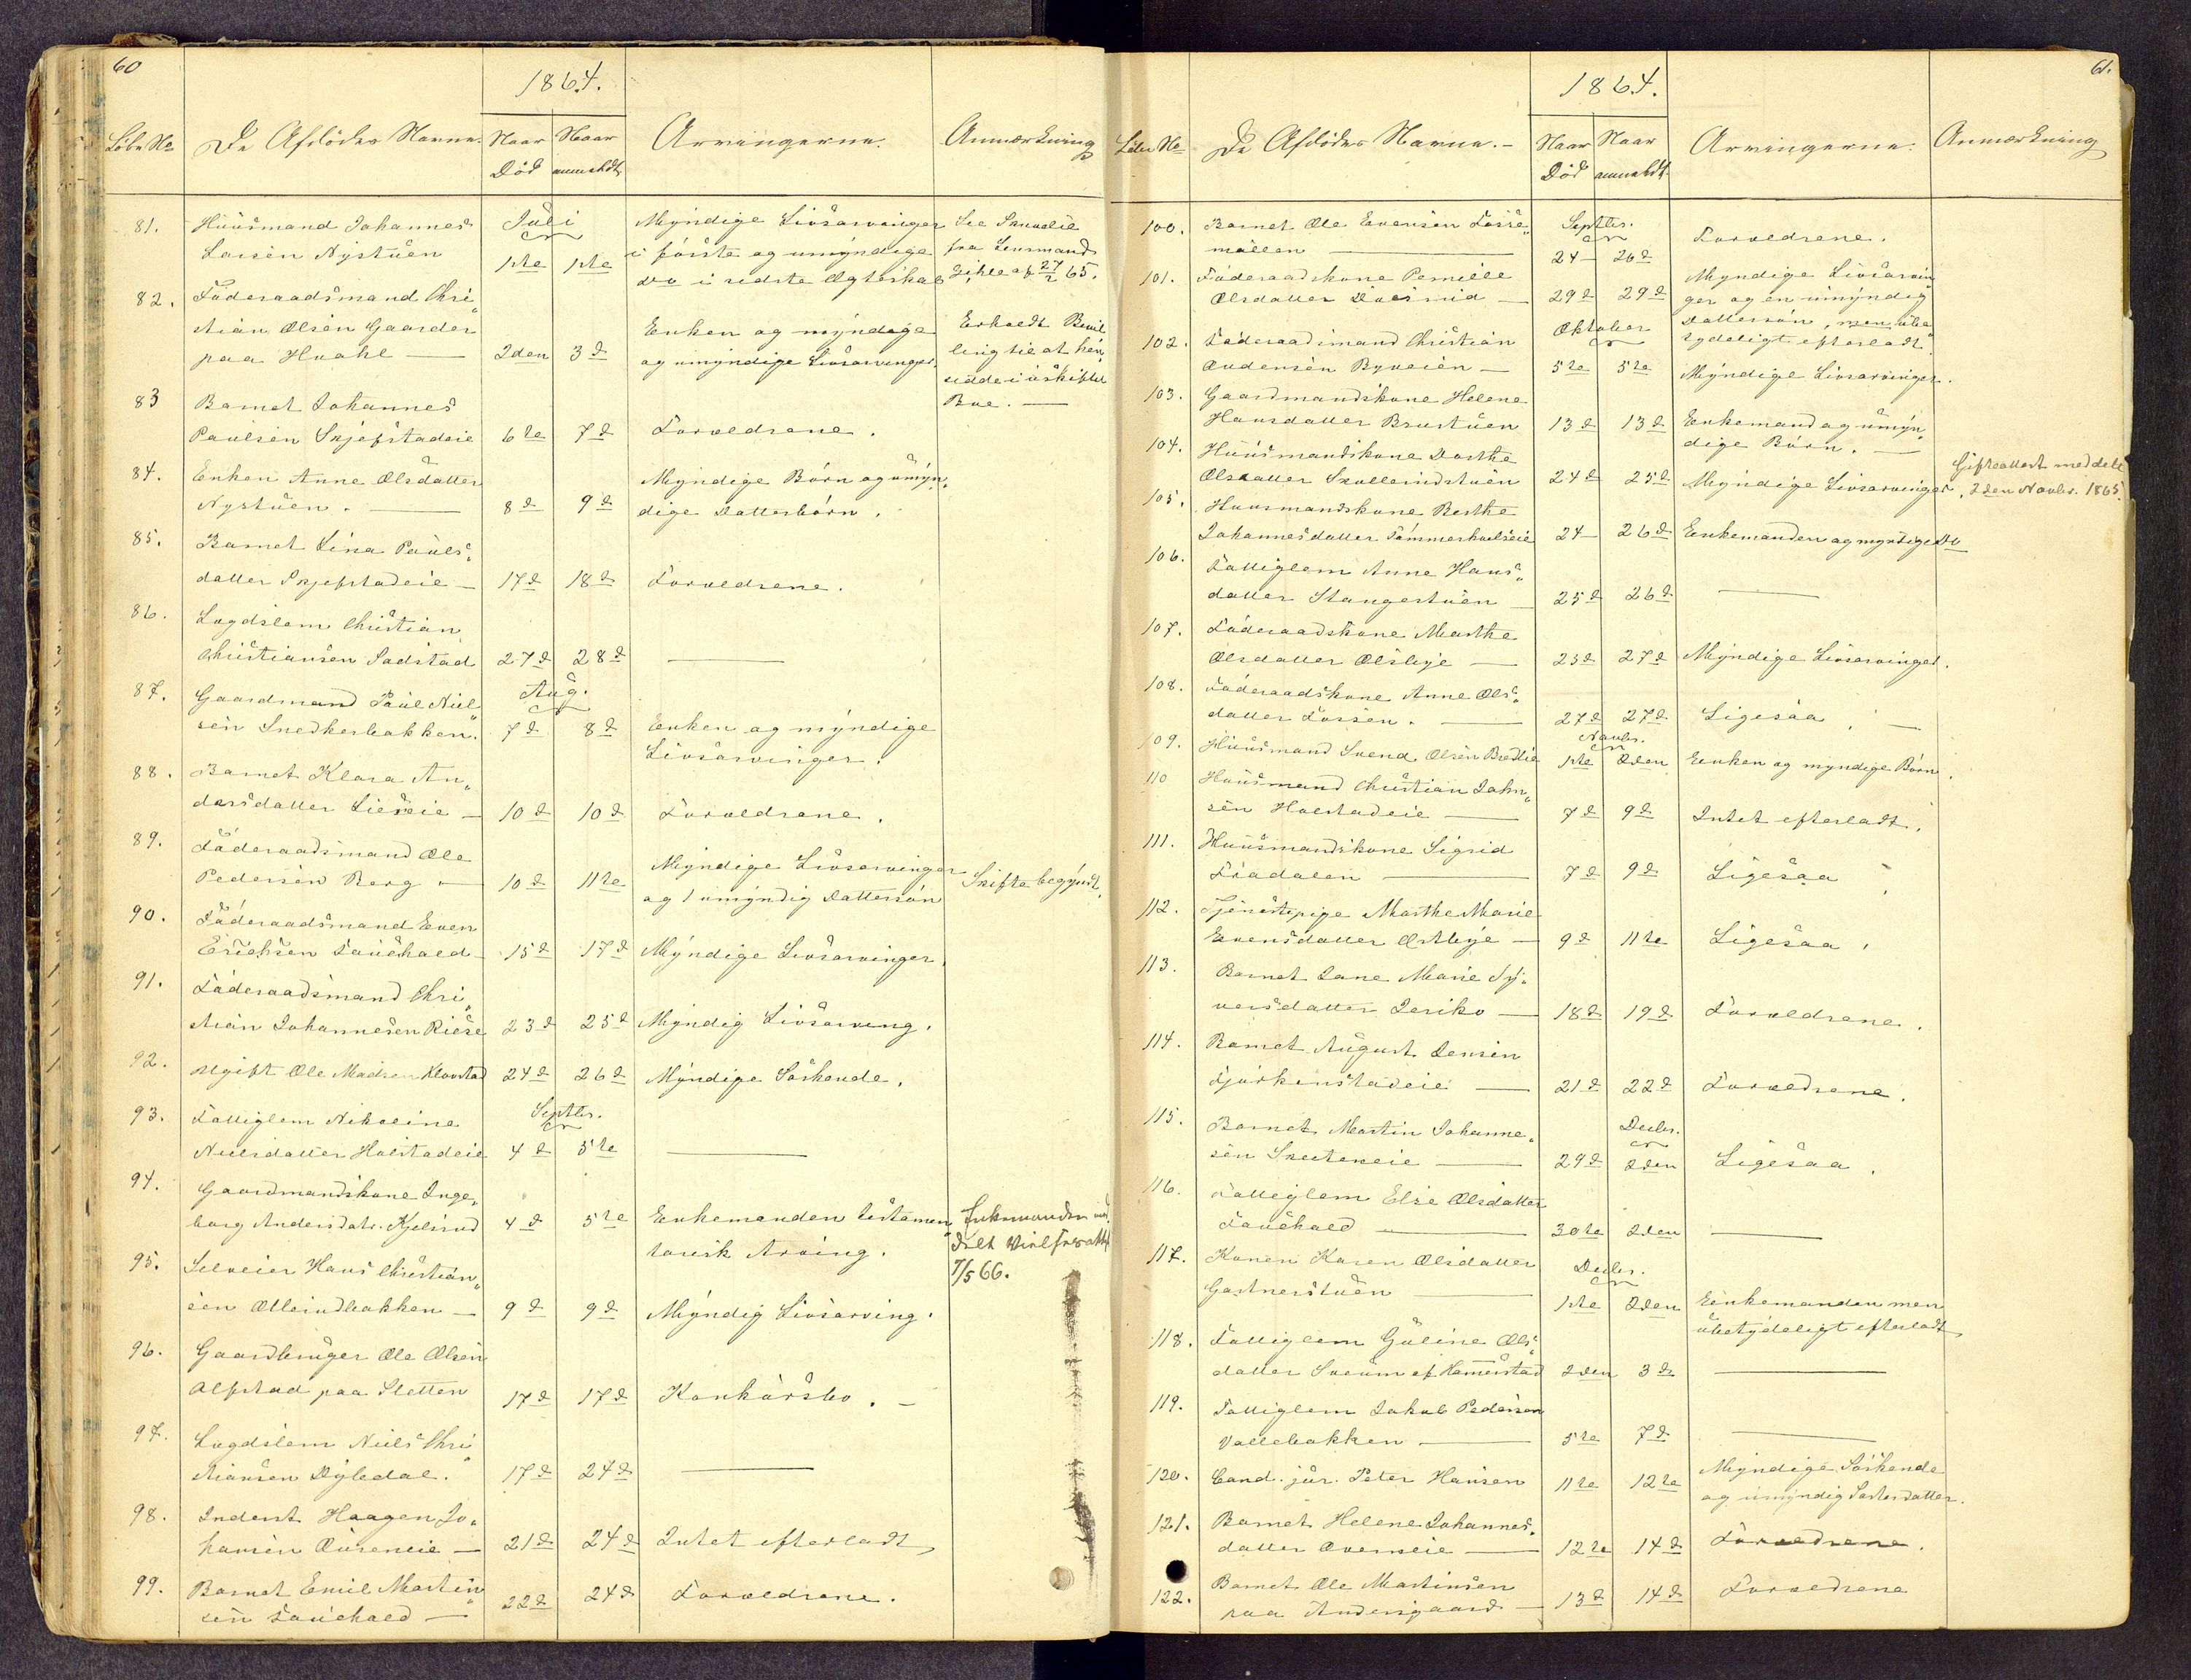 60
1864.
Löbe No
De Afdödes Navne.
Naar Död
Naar anmeldt
Arvingerne.
Anmærkning
81.
Huusmand Johannes
Larsen Nystuen
Juli
1ste 1ste
Myndige Livsarvinger
i förste og umyndige
do i sidste Ægteskab
See Skrivelse
fra Lensmand
Gihle af 27/2 65.
82.
Föderaadsmand Chri„
stian Olsen Gaarder
paa Hvahl —
2den 3d
Enken og myndige
og umyndige Livsarvinger.
Erholdt Bevil
ling til at hen„
sidde i uskiftet
Boe. —
83
Barnet Johannes
Paulsen Skjefstadeie
6te 7d
Forældrene.
84.
Enken Anne Olsdatter
Nystuen. —
8d 9d
Myndige Börn og umyn„
dige Datterbörn.
85.
Barnet Lina Pauls„
datter Skjefstadeie —
17d 18d
Forældrene.
86.
Lægdslem Christian
Christiansen Sadstad
27d 28d
—
87.
Gaardmand Paul Niel„
sen Snedkerbakken.
Aug.
7d 8d
Enken og myndige
Livsarvinger.
88.
Barnet Klara An„
dersdatter Lieseie —
10d 10d
Forældrene.
89.
Föderaadsmand Ole
Pedersen Berg —
10d 11te
Myndige Livsarvinger
og 1 umyndig Dattersön
Skifte begyndt.
90.
Föderaadsmand Even
Erichsen Fauchald —
15d 17d
Myndige Livsarvinger.
91.
Föderaadsmand Chri„
stian Johannesen Riese
23d 25d
Myndig Livsarving.
92.
Ugift Ole Madsen Klovstad
24d 26d
Myndige Söskende.
93.
Fattiglem Nikoline
Nielsdatter Holstadeie
Septbr.
4d 5te
—
94.
Gaardmandskone Inge„
borg Andersdatr. Kjelsrud
4d 5te
Enkemanden testamen„
tarisk Arving.
Enkemanden med„
delt Vielsesatt.
7/5 66.
95.
Selveier Hans Christian„
sen Ollerudbakken —
9d 9d
Myndig Livsarving.
96.
Gaardbruger Ole Olsen
Alfstad paa Sletten
17d 17d
Konkursbo. —
97.
Lægdslem Niels Chri„
stiansen Dybdal.
17d 24d
—
98.
Inderst Haagen Jo„
hansen —
21d 24d
Intet efterladt,
99.
Barnet Emil Martin„
sen Fauchald —
22d 24d
Forældrene.
61.
1864.
Löbe No
De Afdödes Navne. —
Naar Död
Naar anmeldt.
Arvingerne.
Anmærkning
100.
Barnet Ole Evensen Fosse„
möllen —
Septbr.
24 — 26d
Forældrene.
101.
Föderaadskone Pernille
Olsdatter —
29d 29d
Myndige Livsarvin
ger og en umyndig
Dattersön, men ube„
tydeligt efterladt.
102.
Föderaadsmand Christian
Andersen Byveien —
Oktober
5te 5te
Myndige Livsarvinger.
103.
Gaardmandskone Helene
Hansdatter Brustuen
13d 13d
Enkemand og umyn„
dige Börn. —
104.
Huusmandskone Dorthe
Olsdatter Skollerudstuen
24d 25d
Myndige Livsarvinger.
Gifteattest meddelt
2den Novbr. 1865.
105.
Huusmandskone Berthe
Johannesdatter Tömmerholseie
24 — 26d
Enkemanden og myndige Do
106.
Fattiglem Anne Hans„
datter Stangestuen —
25d 26d
—
107.
Föderaadskone Marthe
Olsdatter Olsbye —
23d 27d
Myndige Livsarvinger.
108.
Föderaadskone Anne Ols„
datter Fossen. —
27d 27d
Ligesaa. —
109.
Huusmand Svend Olsen
Novbr.
1ste 2den
Enken og myndige Börn.
110
Huusmand Christian John„
sen Holstadeie —
7d 9d
Intet efterladt.
111.
Huusmandskone Sigrid
—
7d 9d
Ligesaa
112.
Tjenestepige Marthe Marie
Evensdatter Østbye —
9d 11te
Ligesaa.
113.
Barnet Lane Marie Sy„
versdatter Jeriko —
18d 19d
Forældrene.
114.
Barnet August Jensen
Gjörkenstadeie —
21d 22d
Forældrene.
115.
Barnet Martin Johanne„
sen —
29d
Decbr.
2den
Ligesaa.
116.
Fattiglem Else Olsdatter
Fauchald —
30te 2den
—
117.
Konen Karen Olsdatter
Gartnerstuen —
Decbr.
1ste 2den
Enkemanden men
ubetydeligt efterladt
118.
Fattiglem Guline Ols„
datter Sveum af Hamerstad
2den 3d
—
119.
Fattiglem Jakob Pedersen
Vollebakken —
5te 7d
—
120.
Cand. jur. Peter Hansen
11te 12te
Myndige Söskende
og umyndig Sösterdatter.
121.
Barnet Helene Johannes„
datter —
12te 14d
Forældrene.
122.
Barnet Ole Martinsen
paa Andersgaard —
13d 14d
Forældrene